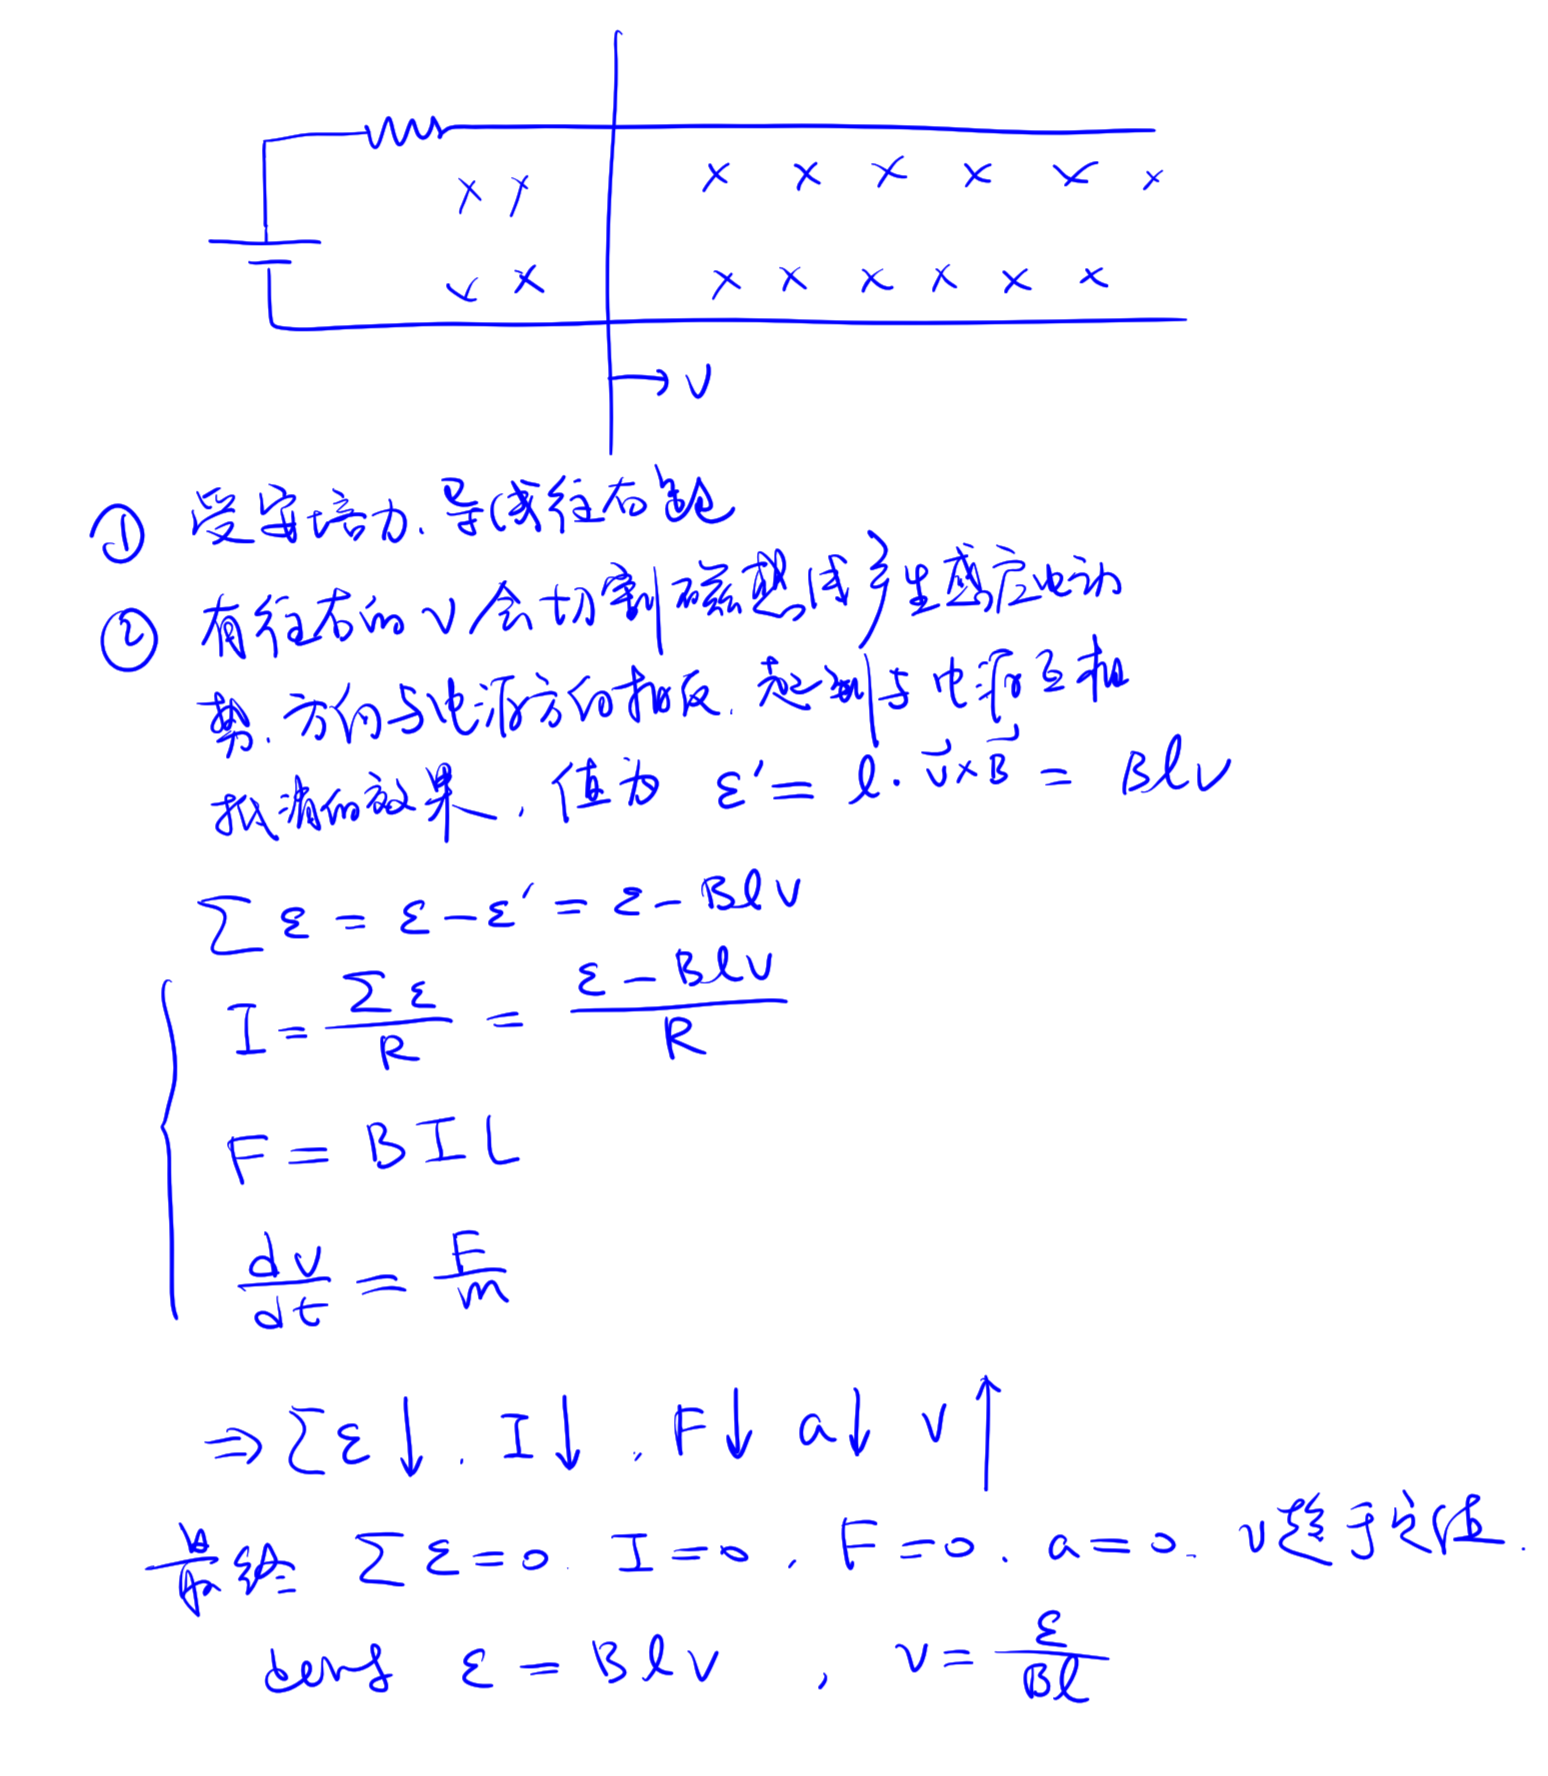 v
① 受安培力.导线往右跑
② 有往右的 v 会切割磁感线产生感应电动
势.方向与电源方向相反.起到与电源互相
抵消的效果,值为 ε′= l·v⃗×B⃗ = Blv
∑ε = ε-ε′ = ε-Blv
I = ∑ε/R = (ε-Blv)/R
F = BIL
dv/dt = F/m
⇒∑ε↓. I↓, F↓ a↓ v↑
最终 ∑ε=0. I=0, F=0. a=0. v趋于定值.
ε = Blv , v = ε/Bl